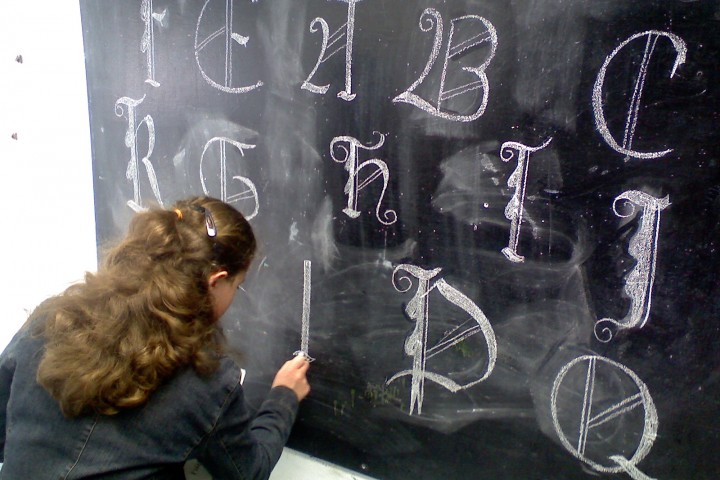 F E A B C
K G H I J
D
Q